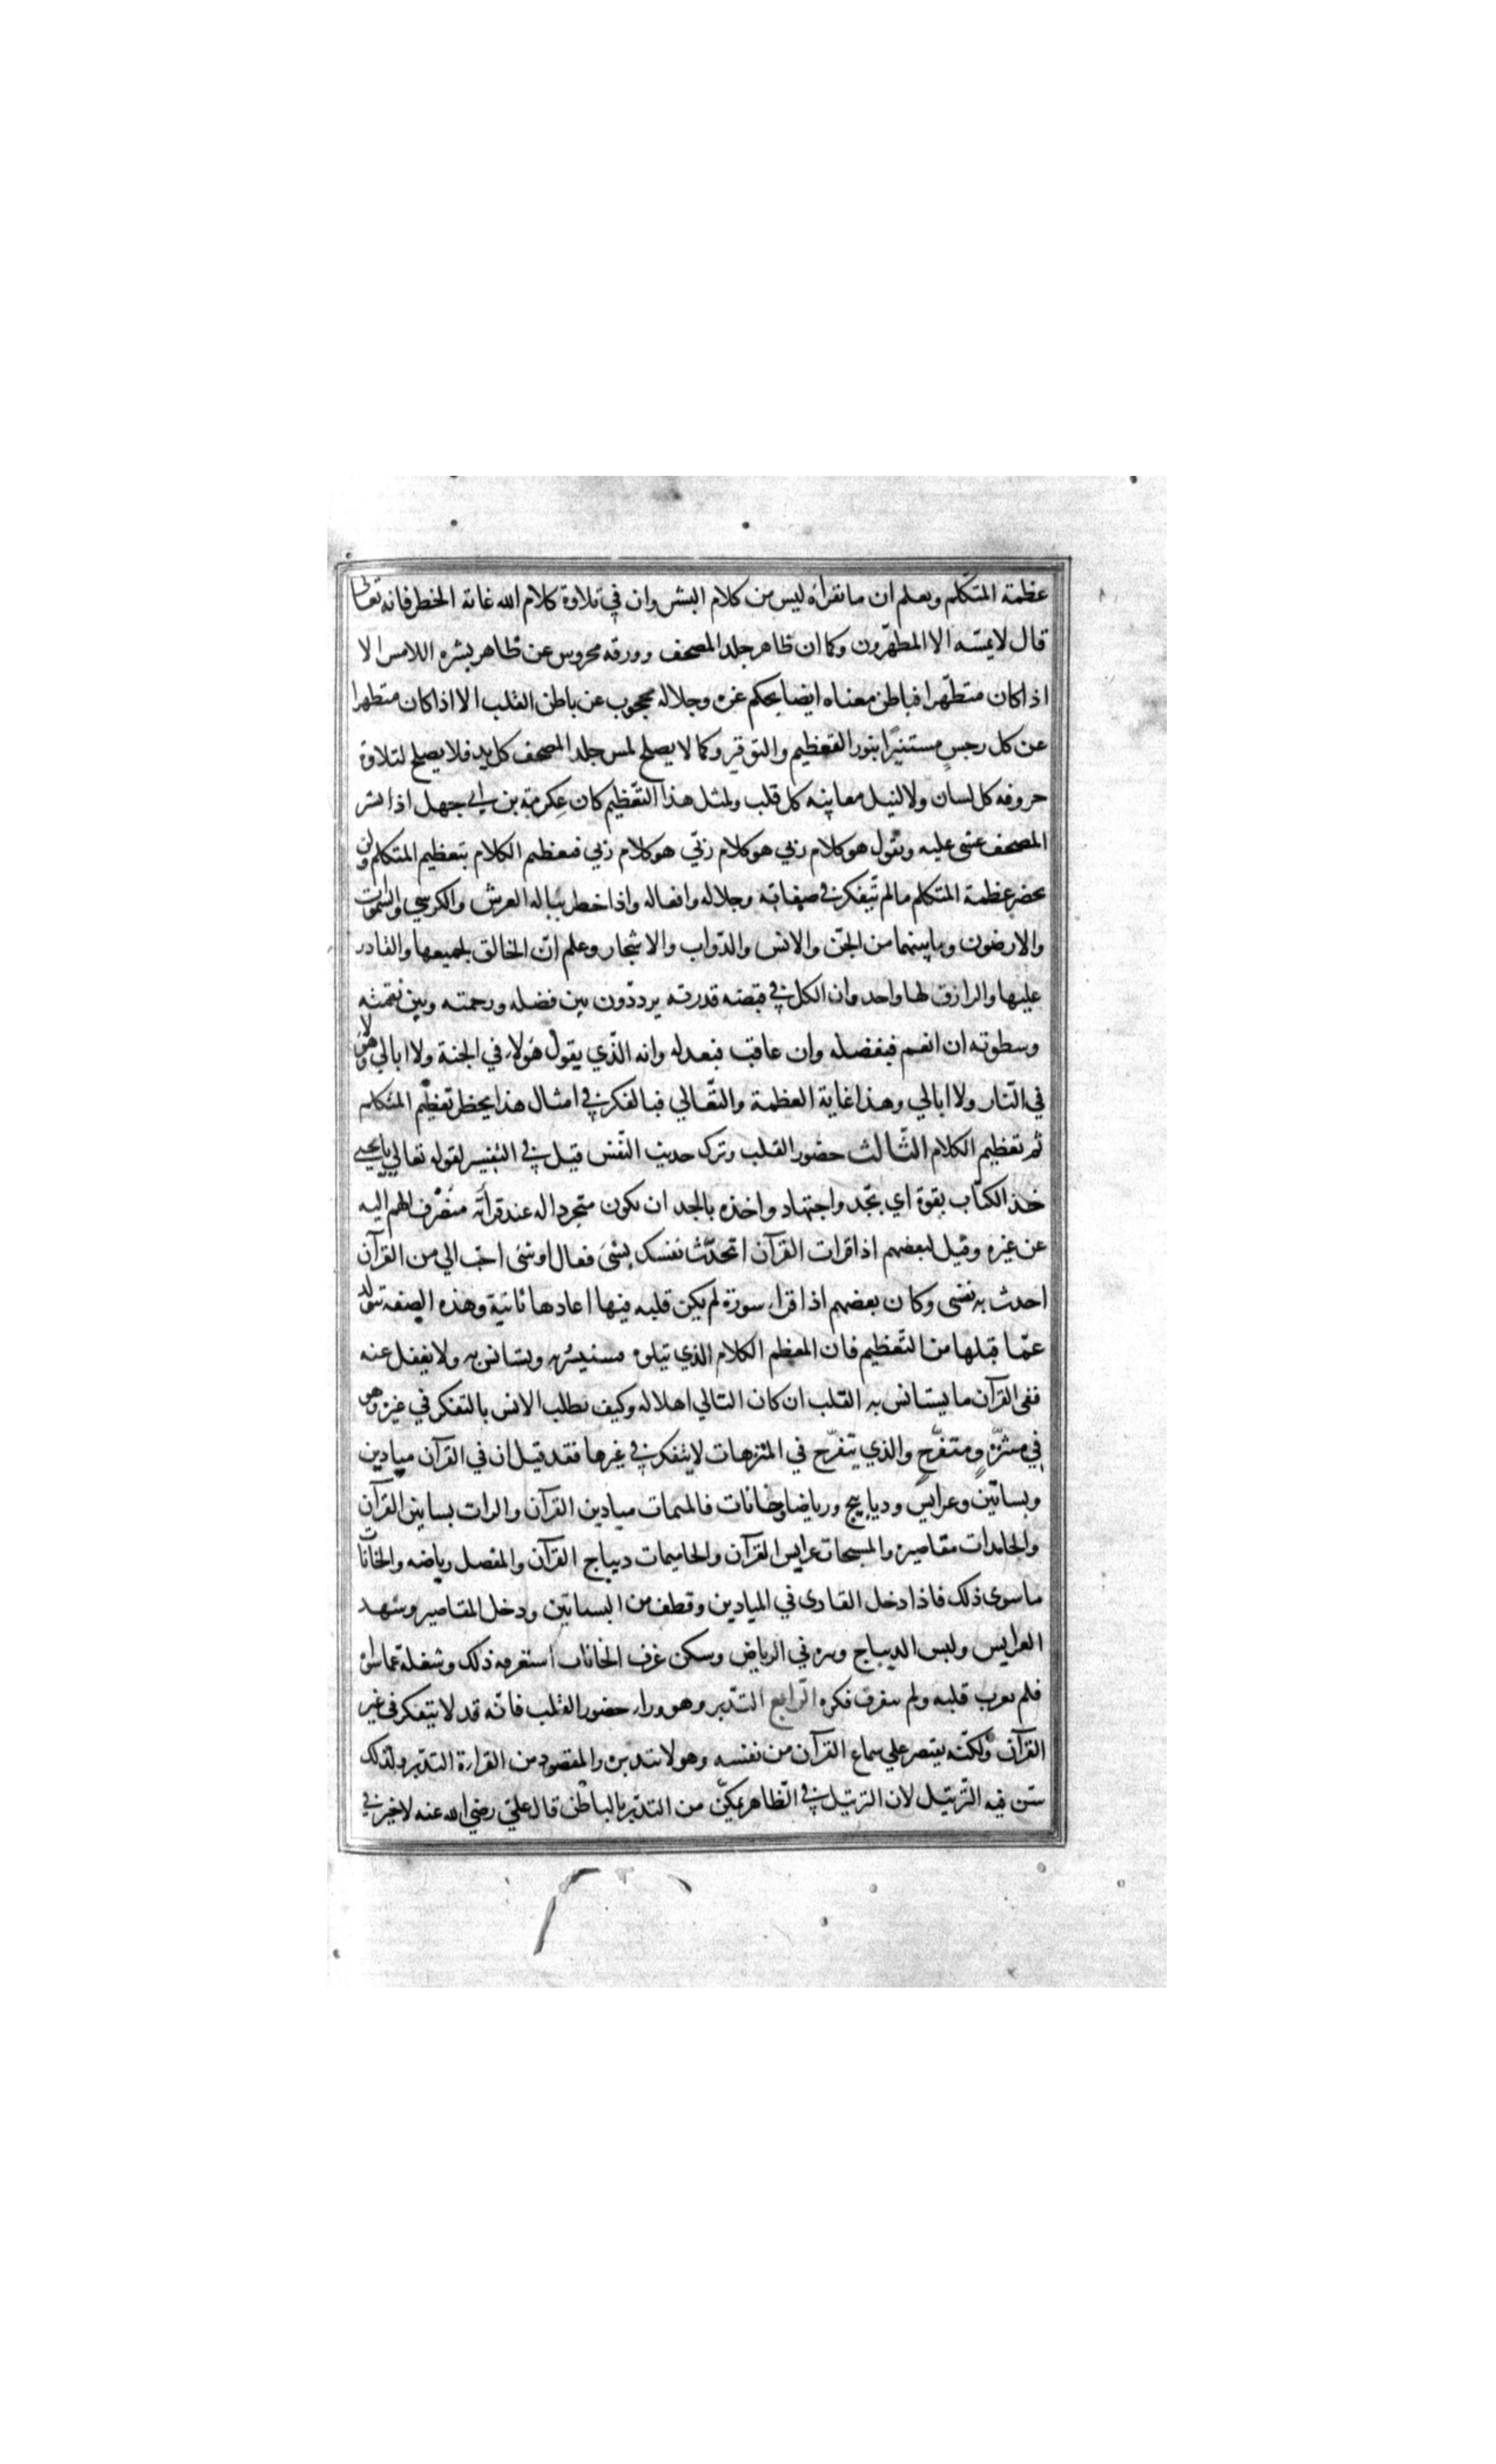 عظمة المتكلم ويعلم ان ما نقراه ليس من كلام البشر وان في تلاوة كلام الله غاية الخطر فانه تعالى
قال لا يمسّه الا المطهّرون وكما ان ظاهر جلد المصحف وورقه محروس عن ظاهر بشره اللامس الا
اذا كان متطهّرا فباطن معناه ايضا بحكم عزه وجلاله محجوب عن باطن القلب الا اذا كان متطهرا
عن كل رجسٍ مستنيرًا بنور التعظيم والتوقير وكما لا يصلح لمس جلد المصحف كل يد فلا يصلح لتلاوة
حروفه كل لسان ولا لنيل معاينه كل قلب ولمثل هذا التعظيم كان عِكرمة بن ابي جهل اذا نشر
المصحف غشى عليه ويقول هو كلام ربي هو كلام ربّي هو كلام ربي فيعظم الكلام بتعظيم المتكلم ولن
يحضر عظمة المتكلم ما لم تيفكر في صفاته وجلاله وافعاله واذا خطر بباله العرش والكرسي والسموات
والارضون وما بينهما من الجنّ والانس والدّواب والاشجار وعلم انّ الخالق لجميعها والقادر
عليها والرازق لها واحد وان الكل في قبضة قدرته يرددون بين فضله ورحمته وبين نقمته
وسطوته ان انعم فبفضله وان عاقب فبعدله وانه الّذي يقول هولاء في الجنة ولا ابالي وهولا
في النّار ولا ابالي وهذا غاية العظمة والتّعالي فبالفكر في امثال هذا يحظر تعظيم المتكلم
ثم تعظيم الكلام الثّالث حضور القلب وترك حديث النّفس قيل في التفسير لقوله تعالي يا يحيى
خذ الكتاب بقوة اي بجّد واجتهاد واخذه بالجد ان يكون متجردا له عند قرأته منصرف الهم اليه
عن غيره وقيل لبعضهم اذا قرات القرآن اتحدّث نفسك بشئ فقال او شئ احّب الي من القرآن
احدث به نفسي وكان بعضهم اذا قراء سورة لم يكن قلبه فيها اعادها ثانية وهذه الصفة تتولد
عمّا قبلها من التّعظيم فان المعظم الكلام الذي تيلوه يستبشر به ويستانس به ولا يغفل عنه
ففى القرآن ما يستانس به القلب ان كان التالي اهلا له وكيف يطلب الانس بالتفكر في غيره وهو
في متنزّهٍ ومتفرّحٍ والذي يتفرّح في المتنزهات لا يتفكر في غيرها فقد قيل ان في القرآن ميادين
وبساتين وعرايس وديابيج ورياضا وخانات فالميمات ميادين القرآن والرات بساتين القرآن
والحامدات مقاصيره والمسبحات عرايس القرآن والحاميمات ديباج القرآن والمفصل رياضه والخانات
ما سوى ذلك فاذا دخل القارى في الميادين وقطف من البساتين ودخل المقاصير وشهد
العرايس ولبس الديباج وتنزه في الرياض وسكن غرف الخانات استغرقه ذلك وشغله عما سواه
فلم يعزب قلبه ولم يتفرق فكره الرّابع التدّبر وهو وراء حضور القلب فانّه قد لا يتفكر في غير
القرآن ولكنّه يقتصر علي سماع القرآن من نفسه وهو لا يتدبره والمقصود من القراءة التدبّر ولذلك
سّن فيه التّرتيل لان الترتيل في الظاهر يمكّن من التدبّر بالباطن قال علىّ رضي الله عنه لا خير في